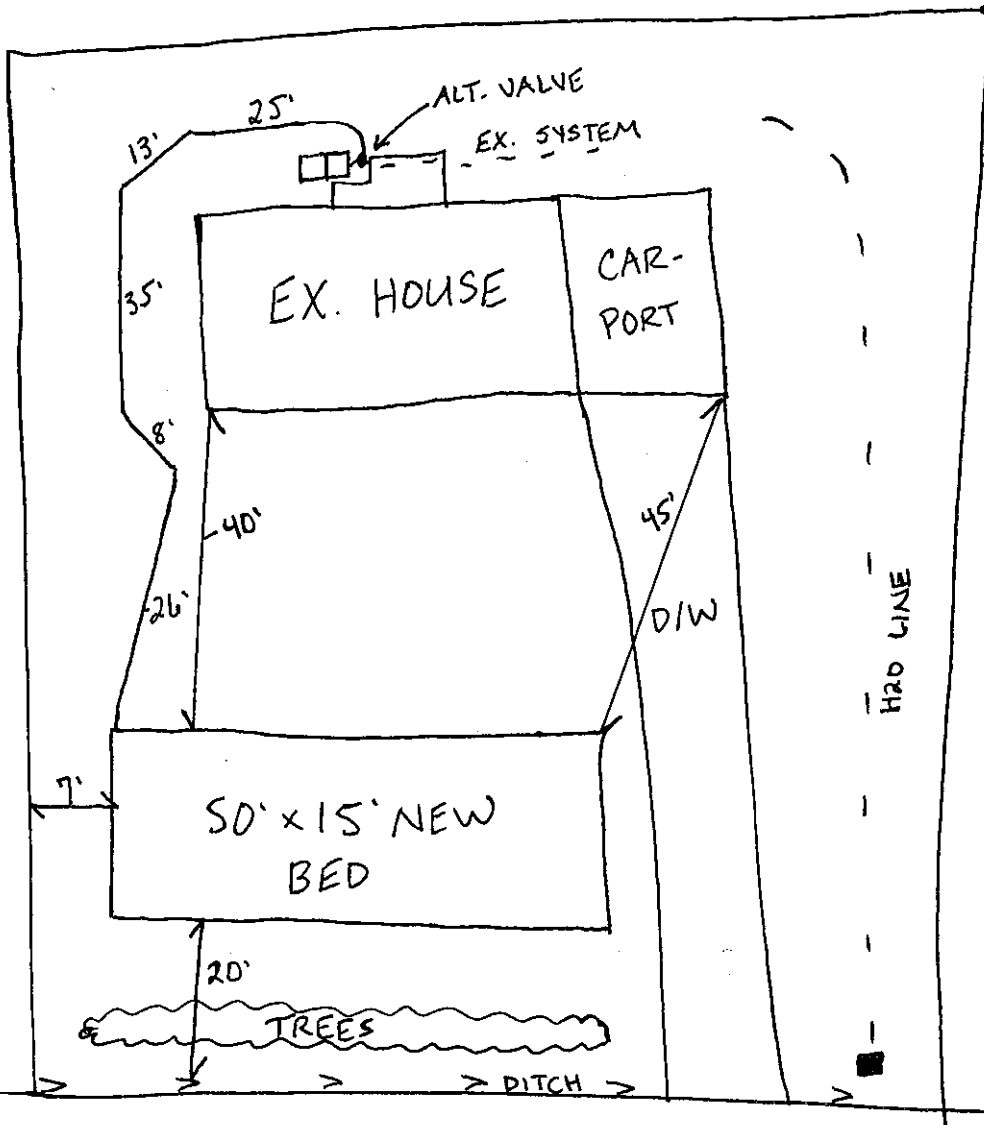 25'
ALT. VALVE
13'
EX. SYSTEM
35'
EX. HOUSE
CAR-
PORT
8'
40'
45'
26'
D/W
H20 LINE
7'
50' x 15' NEW
BED
20'
TREES
> > > > DITCH > >